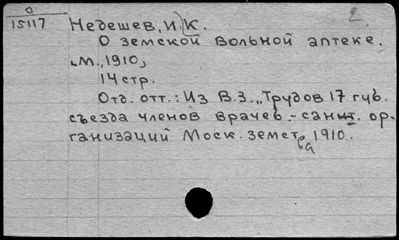 0
15117
2.
Недешев, И.К.
О земской вольной аптеке.
М., 1910,
14 стр.
Отд. отт.: Из В.З. „Трудов 17 губ.
съезда членов врачеб.-санит. ор-
ганизаций Моск. земства 1910.